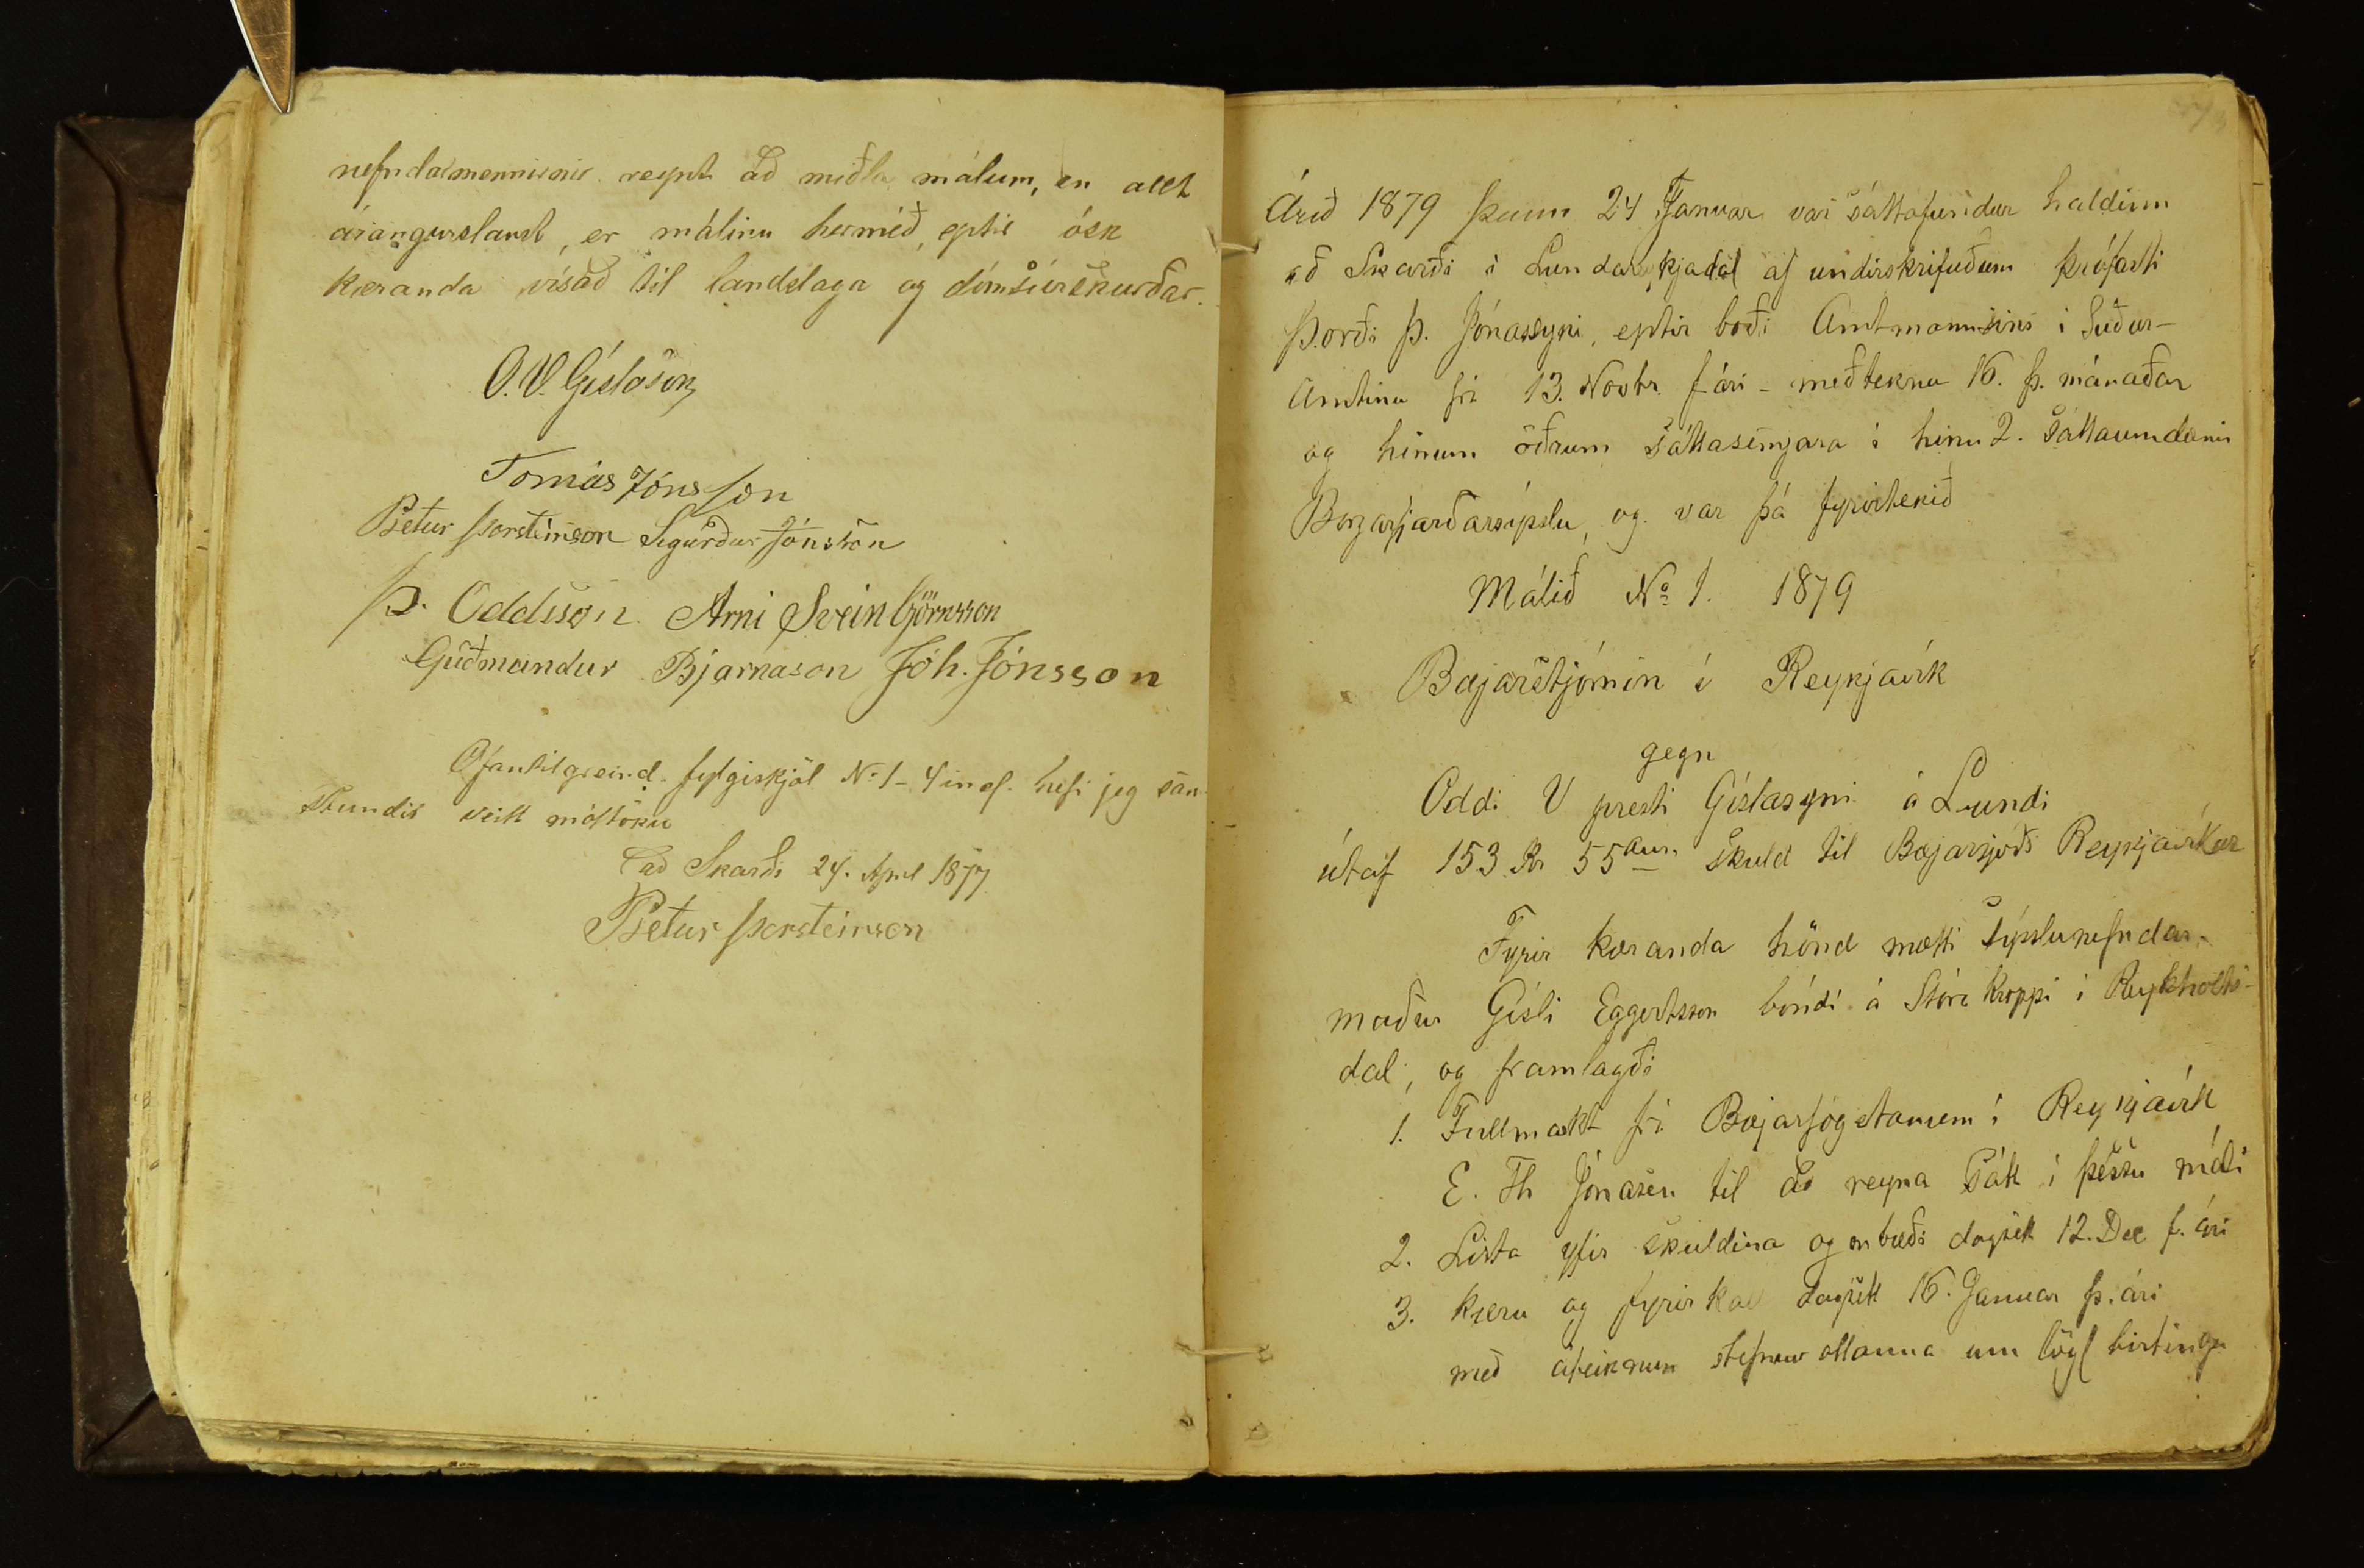 nefndarmennirnir reynt að miðla málum, en allt
árangurslaust, er málinu hermeð, eptir ósk
kæranda vísað til landslaga og dómsúrskurðar.
O. V. Gíslason
Tomás Jónsson
Pietur Þorsteinson Sigurður Jónsson
Þ. Oddsson Arni Sveinbjörnsson
Guðmundur Bjarnason Jóh. Jónsson
Ofantilgreind fylgiskjöl No 1-4 incl. hefi jeg sam-
stundis veitt móttöku
að Skarði 24. April 1877
Pietur Þorsteinson
Árið 1879 þann 24 Januar var sáttafundur haldinn
að Skarði í Lundareykjadal af undirskrifuðum prófasti
Þorði Þ. Jónassyni, eptir boði Amtmannsins í Suður-
Amtinu frá 13. Novbr. f ári - meðteknu 16. þ. mánaðar
og hinum öðrum sáttasemjara í hinu 2. Sáttaumdæmi
Borgarfjarðarsýslu, og var þá fyrirtekið
Málið No 1. 1879
Bæjarstjórnin í Reykjavík
gegn
Oddi V presti Gíslasyni á Lundi
útaf 153 Kr 55 aur. skuld til Bæjarsjóðs Reykjavíkur
Fyrir kæranda hönd mætti sýslunefndar-
maður Gísli Eggertsson bóndi á Stóra Kroppi í Reykholts-
dal, og framlagði
1. Fullmakt frá Bæjarfógetanum í Reykjavík
E. Th Jónasen til að reyna sátt í þessu máli
2. Lista yfir skuldina og bæði dagsett 12. Dec f. ári
3. Kæru og fyrirkall dagsett 16. Januar þ. ári
með áteiknun stefnuvottanna um lögl birtingu